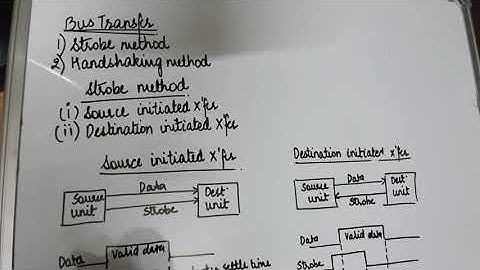 Bus Transfer
1) Strobe method
2) Handshaking method
Strobe method
(i) Source initiated x'fer
(ii) Destination initiated x'fer
Source initiated x'fer
Data
Source unit
Dest. unit
Strobe
Data
Valid data
settle time
Destination initiated x'fer
Data
Source unit
Dest. unit
Strobe
Data
Valid data
Strobe